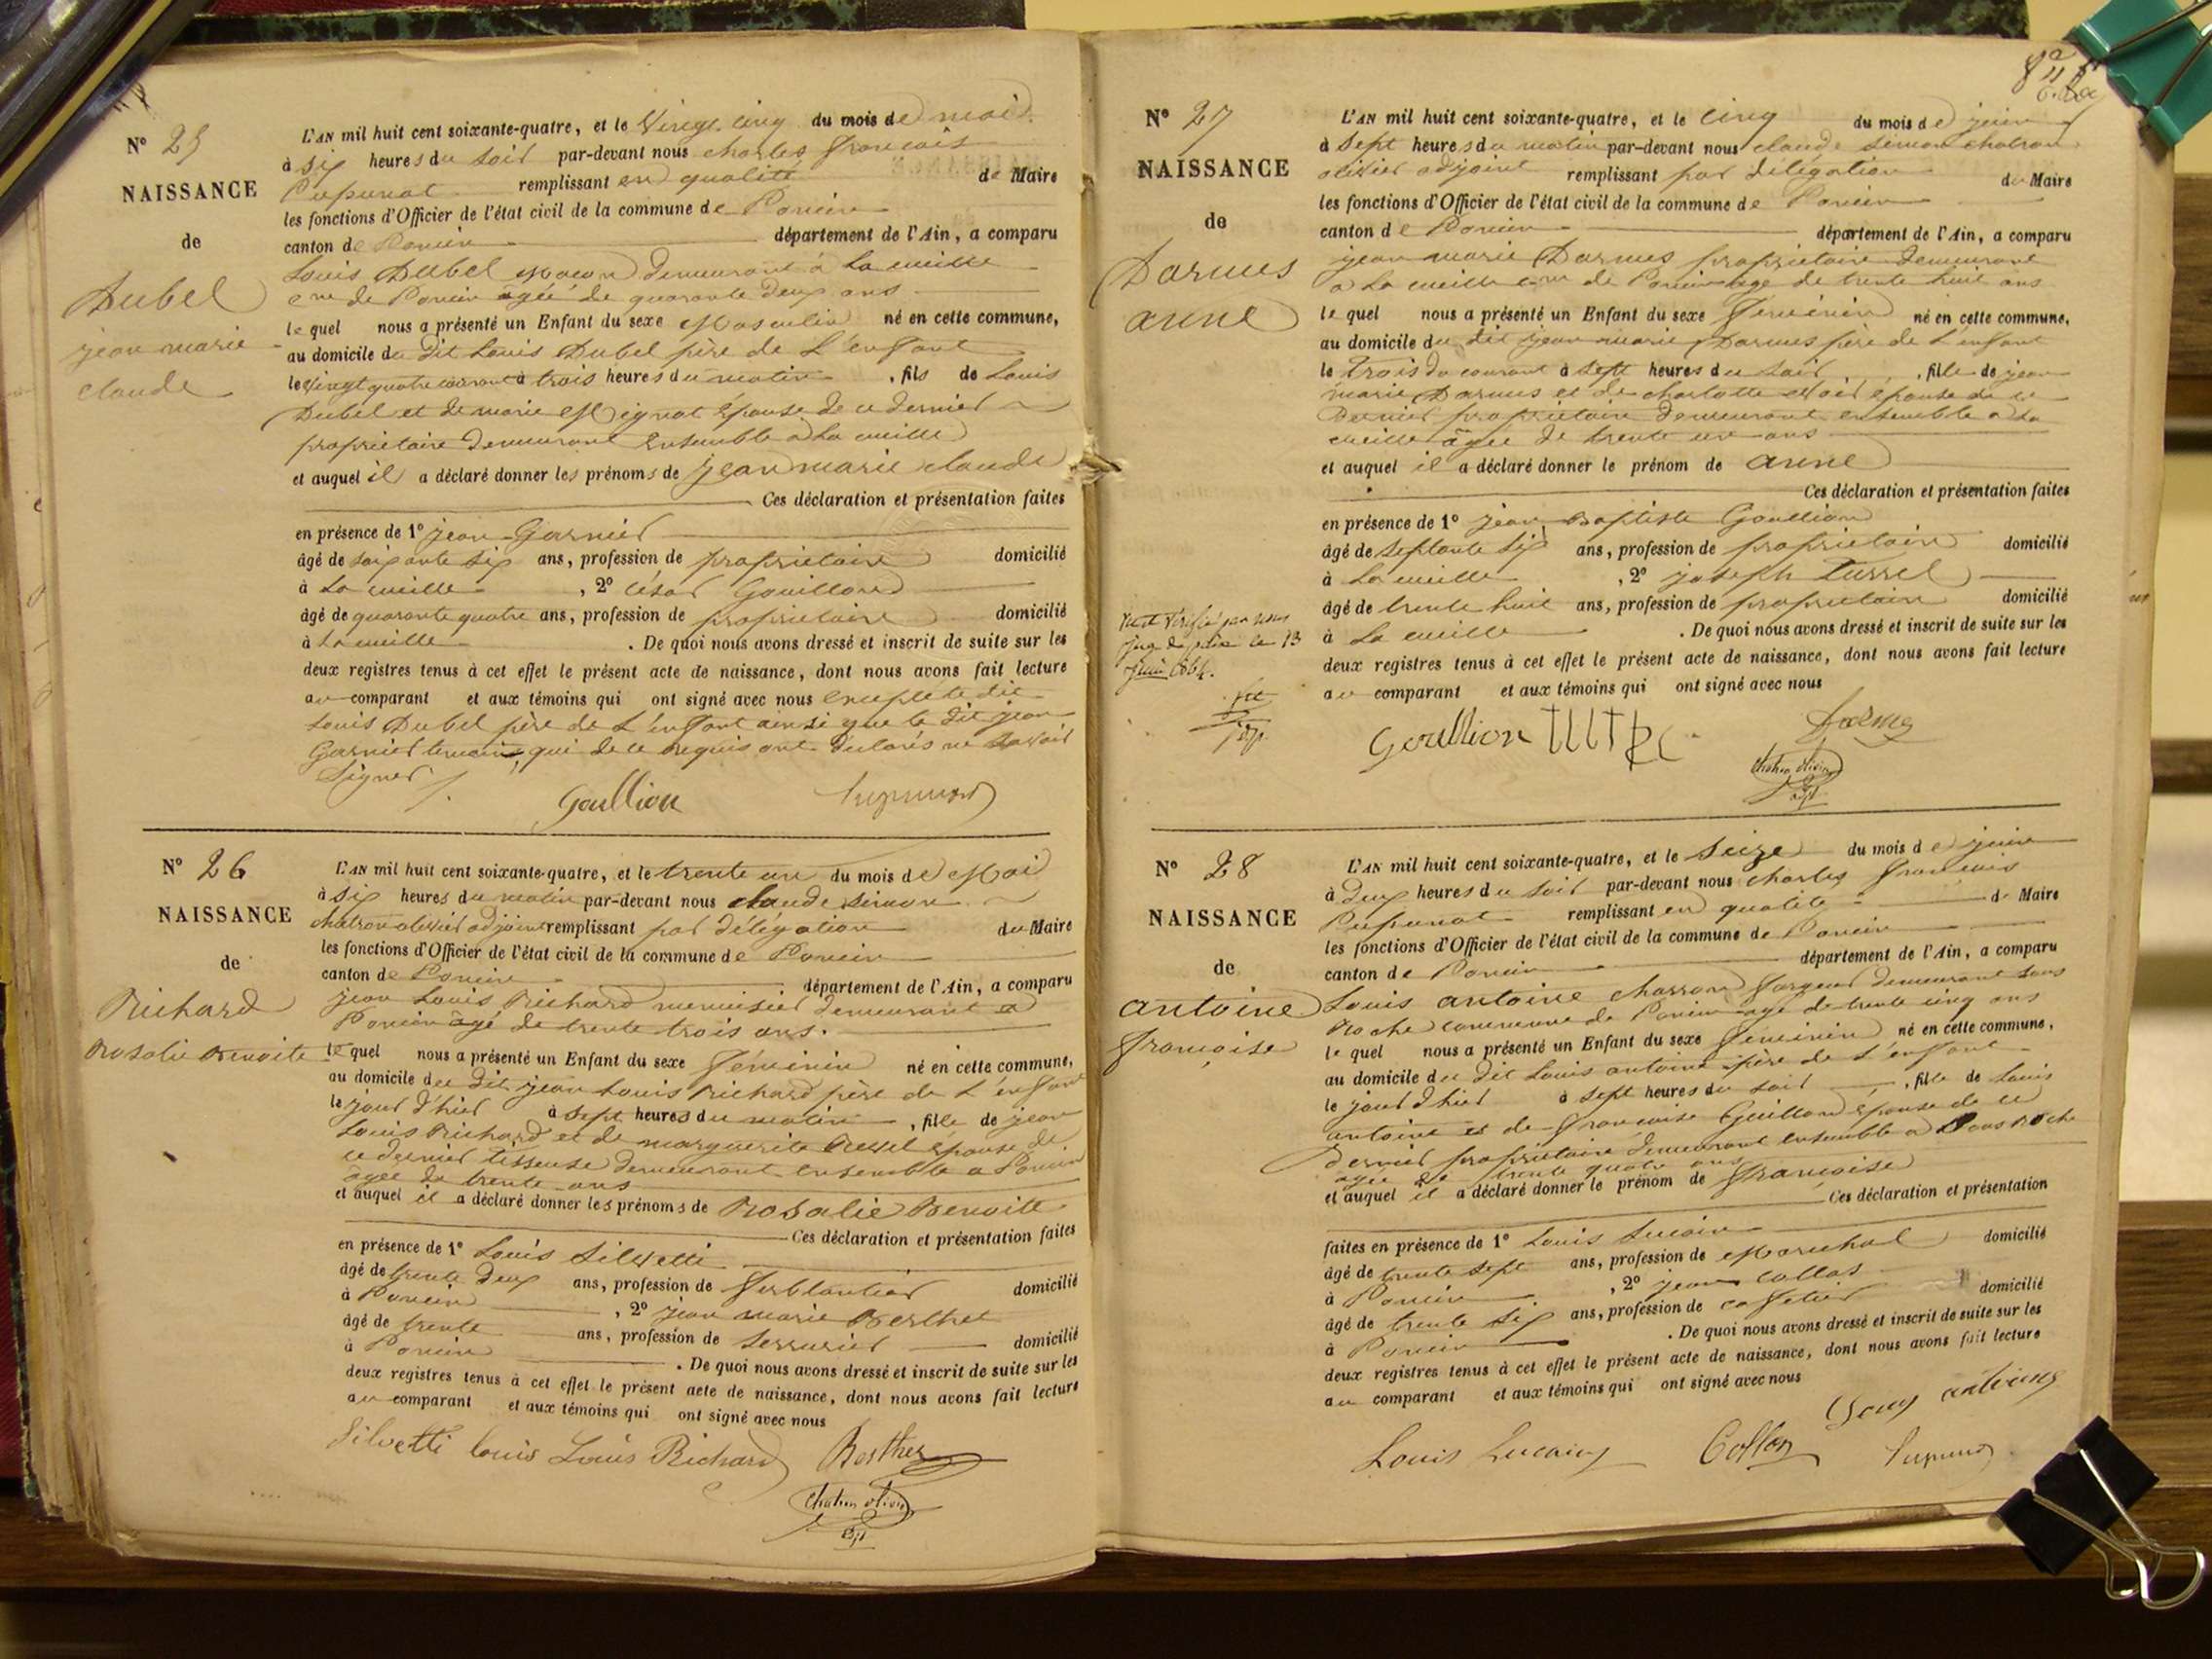 N° 25
NAISSANCE
de
Dubel
jean marie
claude
L'AN mil huit cent soixante-quatre, et le vingt cinq du mois de mai
à six heures du soir par-devant nous charles françois
Pupunat remplissant en qualité de Maire
les fonctions d'Officier de l'état civil de la commune de Poncin
canton de Poncin département de l'Ain, a comparu
Louis Dubel maçon demeurant à la cueille
cne de Poncin âgé de quarante deux ans
lequel nous a présenté un Enfant du sexe Masculin né en cette commune,
au domicile du dit Louis Dubel père de L'enfant
le vingt quatre courant à trois heures du matin, fils de Louis
Dubel et de marie Mignat épouse de ce dernier
propriétaire demeurant ensemble à La cueille
et auquel il a déclaré donner les prénoms de jean marie claude
Ces déclaration et présentation faites
en présence de 1° jean Garnier
âgé de soixante six ans, profession de propriétaire domicilié
à La cueille, 2° César Gouillon
âgé de quarante quatre ans, profession de propriétaire domicilié
à La cueille. De quoi nous avons dressé et inscrit de suite sur les
deux registres tenus à cet effet le présent acte de naissance, dont nous avons fait lecture
au comparant et aux témoins qui ont signé avec nous excepté le dit
Louis Dubel père de L'enfant ainsi que le dit jean
Garnier temoin, qui de ce requis ont déclarés ne savoir
signer
Goullion Pupunat
N° 26
NAISSANCE
de
Richard
Rosalie Benoite
L'AN mil huit cent soixante-quatre, et le trente un du mois de Mai
à six heures du matin par-devant nous claude simon
chatron olivier adjoint remplissant par délégation du Maire
les fonctions d'Officier de l'état civil de la commune de Poncin
canton de Poncin département de l'Ain, a comparu
jean Louis Richard menuisier demeurant a
Poncin âgé de trente trois ans.
lequel nous a présenté un Enfant du sexe féminin né en cette commune,
au domicile du dit jean Louis Richard père de L'enfant
le jour d'hier à sept heures du matin, fille de jean
Louis Richard et de marguerite épouse de
ce dernier tisseuse demeurant ensemble a Poncin
âgée de trente ans
et auquel il a déclaré donner les prénoms de Rosalie Benoite
Ces déclaration et présentation faites
en présence de 1° Louis Silvetti
âgé de trente deux ans, profession de ferblantier domicilié
à Poncin, 2° jean marie Berthet
âgé de trente ans, profession de serrurier domicilié
à Poncin. De quoi nous avons dressé et inscrit de suite sur les
deux registres tenus à cet effet le présent acte de naissance, dont nous avons fait lecture
au comparant et aux témoins qui ont signé avec nous
Silvetti louis Louis Richard Berthet
Chatron olivier
adjt
N° 27
NAISSANCE
de
Darmes
anne
L'AN mil huit cent soixante-quatre, et le cinq du mois de juin
à sept heures du matin par-devant nous claude simon chatron
olivier adjoint remplissant par délégation du Maire
les fonctions d'Officier de l'état civil de la commune de Poncin
canton de Poncin département de l'Ain, a comparu
jean marie Darmes propriétaire demeurant
a La cueille cne de Poncin age de trente huit ans
lequel nous a présenté un Enfant du sexe féminin né en cette commune,
au domicile du dit jean marie Darmes père de L'enfant
le trois du courant à sept heures du soir, fille de jean
marie Darmes et de charlotte épouse de ce
dernier propriétaire demeurant ensemble a La
cueille âgée de trente un ans
et auquel il a déclaré donner le prénom de anne
Ces déclaration et présentation faites
en présence de 1° jean Baptiste Goullion
âgé de septante six ans, profession de propriétaire domicilié
à La cueille, 2° joseph
âgé de trente huit ans, profession de propriétaire domicilié
à La cueille. De quoi nous avons dressé et inscrit de suite sur les
deux registres tenus à cet effet le présent acte de naissance, dont nous avons fait lecture
au comparant et aux témoins qui ont signé avec nous
Vu et vérifié par nous
juge de paix le 13
juin 1864.
Goullion Darmes
Chatron olivier
adjt
N° 28
NAISSANCE
de
antoine
françoise
L'AN mil huit cent soixante-quatre, et le seize du mois de juin
à deux heures du soir par-devant nous charles françois
Pupunat remplissant en qualité de Maire
les fonctions d'Officier de l'état civil de la commune de Poncin
canton de Poncin département de l'Ain, a comparu
Louis antoine charron forgeur demeurant sous
Roche commune de Poncin age de trente cinq ans
lequel nous a présenté un Enfant du sexe féminin né en cette commune,
au domicile du dit Louis antoine père de L'enfant
le jour d'hier à sept heures du soir, fille de Louis
antoine et de françoise Guillon épouse de ce
dernier propriétaire demeurant ensemble a Sous Roche
agée de trente quatre ans
et auquel il a déclaré donner le prénom de françoise
Ces déclaration et présentation
faites en présence de 1° Louis Lucain
âgé de trente sept ans, profession de Marechal domicilié
à Poncin, 2° jean collas
âgé de trente six ans, profession de cafetier domicilié
à Poncin. De quoi nous avons dressé et inscrit de suite sur les
deux registres tenus à cet effet le présent acte de naissance, dont nous avons fait lecture
au comparant et aux témoins qui ont signé avec nous
Louis antoine
Louis Lucain Collas Pupunat